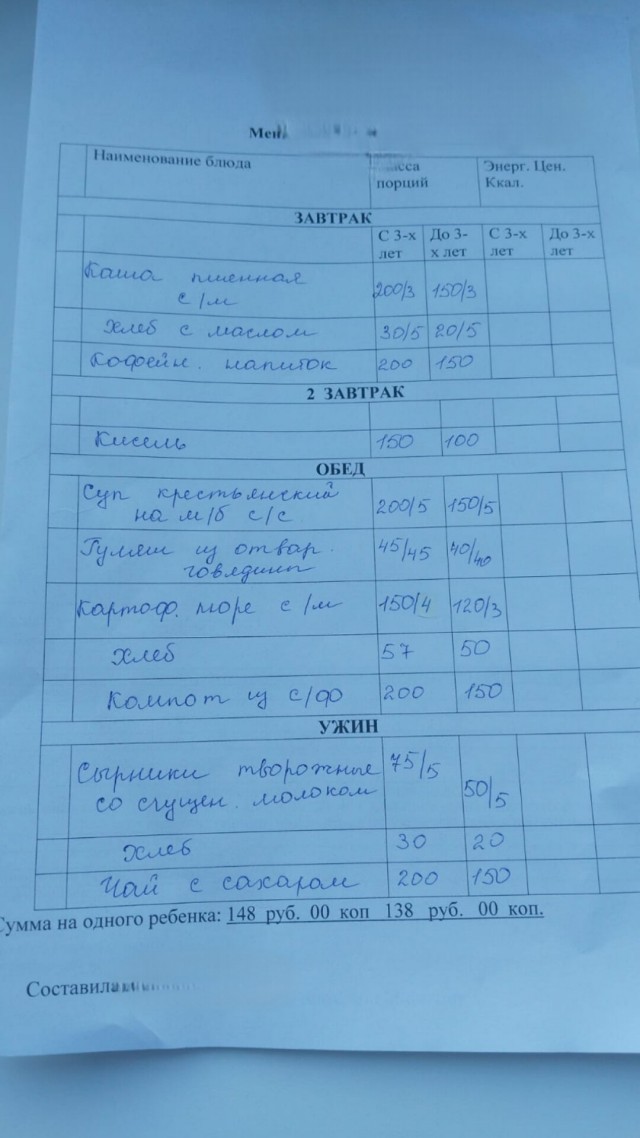 Мен
Наименование блюда
порций
Энерг. Цен.
Ккал.
ЗАВТРАК
С 3-х лет До 3-х лет С 3-х лет До 3-х лет
Каша пшенная
с/м 200/3 150/3
Хлеб с маслом 30/5 20/5
Кофейн. напиток 200 150
2 ЗАВТРАК
Кисель 150 100
ОБЕД
Суп крестьянский
на м/б с/с 200/5 150/5
Гуляш из отвар. 45/45 40/40
говядины
Картоф. пюре с/м 150/4 120/3
Хлеб 57 50
Компот из с/ф 200 150
УЖИН
Сырники творожные 75/5
со сгущен. молоком 50/5
Хлеб 30 20
Чай с сахаром 200 150
Сумма на одного ребенка: 148 руб. 00 коп 138 руб. 00 коп.
Составила